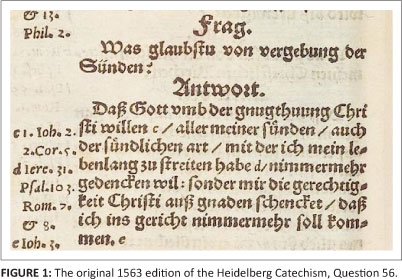 & 13.
Frag.
Phil. 2.
Was glaubstu von vergebung der
Sünden?
Antwort.
Daß Gott vmb der gnugthuung Chri
c 1. Joh. 2. sti willen c / aller meiner sünden / auch
2. Cor. 5. der sündlichen art / mit der ich mein le-
d Ierc. 31. benlang zu streiten habe d / nimmermehr
Psal. 103. gedencken wil: sonder mir die gerechtig-
Rom. 7. keit Christi auß gnaden schencket / daß
& 8. ich ins gericht nimmermehr soll kom-
e Ioh. 3. men. e
FIGURE 1: The original 1563 edition of the Heidelberg Catechism, Question 56.